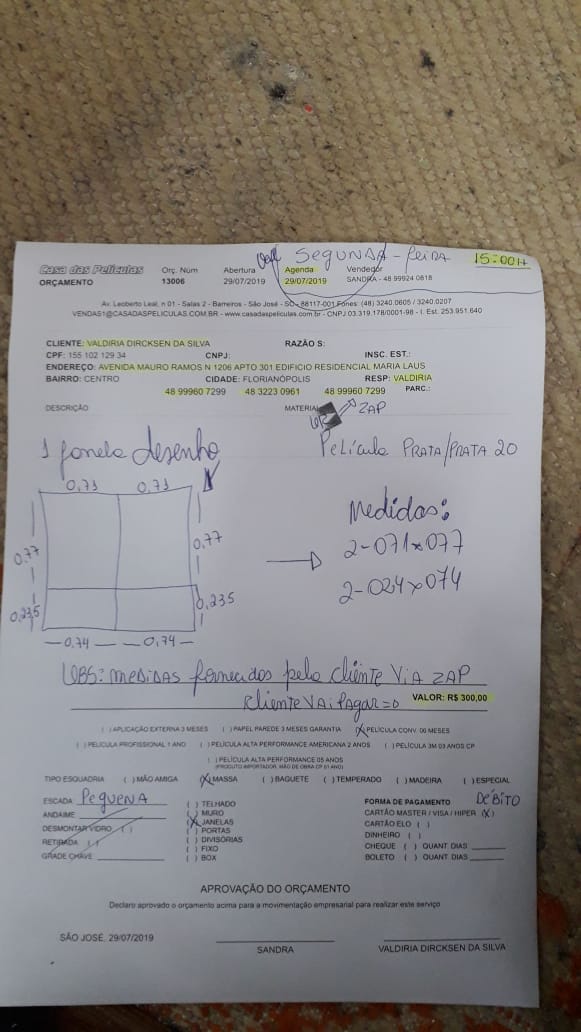 Casa das Películas
ORÇAMENTO
Orç. Núm
13006
Abertura
29/07/2019
Agenda
29/07/2019
Vendedor
SANDRA - 48 99924 0818
SEGUNDA-feira 15:00H
Av. Leoberto Leal, n 01 - Salas 2 - Barreiros - São José - SC - 88117-001 Fones: (48) 3240.0605 / 3240.0207
VENDAS1@CASADASPELICULAS.COM.BR - www.casadaspeliculas.com.br - CNPJ 03.319.178/0001-98 - I. Est. 253.951.640
CLIENTE: VALDIRIA DIRCKSEN DA SILVA RAZÃO S:
CPF: 155 102 129 34 CNPJ: INSC. EST.:
ENDEREÇO: AVENIDA MAURO RAMOS N 1206 APTO 301 EDIFICIO RESIDENCIAL MARIA LAUS
BAIRRO: CENTRO CIDADE: FLORIANÓPOLIS RESP: VALDIRIA
48 99960 7299 48 3223 0961 48 99960 7299 PARC.:
DESCRIÇÃO MATERIAL
ZAP
1 Janela desenho
Película PRATA/PRATA 20
0,71 0,71
0,77 0,77
0,235 0,235
0,74 0,74
Medidas:
2-071x077
2-024x074
OBS: MEDIDAS fornecidas pelo cliente VIA ZAP
Cliente VAI PAGAR=0 VALOR: R$ 300,00
( ) APLICAÇÃO EXTERNA 3 MESES ( ) PAPEL PAREDE 3 MESES GARANTIA (X) PELÍCULA CONV. 06 MESES
( ) PELÍCULA PROFISSIONAL 1 ANO ( ) PELÍCULA ALTA PERFORMANCE AMERICANA 2 ANOS ( ) PELÍCULA 3M 03 ANOS CP
( ) PELÍCULA ALTA PERFORMANCE 05 ANOS
(PRODUTO IMPORTADOR, MÃO DE OBRA CP 01 ANO)
TIPO ESQUADRIA ( ) MÃO AMIGA (X) MASSA ( ) BAGUETE ( ) TEMPERADO ( ) MADEIRA ( ) ESPECIAL
ESCADA PEQUENA
ANDAIME
DESMONTAR VIDRO ( )
RETIRADA ( )
GRADE CHAVE
( ) TELHADO
( ) MURO
(X) JANELAS
( ) PORTAS
( ) DIVISÓRIAS
( ) FIXO
( ) BOX
FORMA DE PAGAMENTO DÉBITO
CARTÃO MASTER / VISA / HIPER (X)
CARTÃO ELO ( )
DINHEIRO ( )
CHEQUE ( ) QUANT DIAS
BOLETO ( ) QUANT DIAS
APROVAÇÃO DO ORÇAMENTO
Declaro aprovado o orçamento acima para a movimentação empresarial para realizar este serviço
SÃO JOSÉ, 29/07/2019
SANDRA
VALDIRIA DIRCKSEN DA SILVA